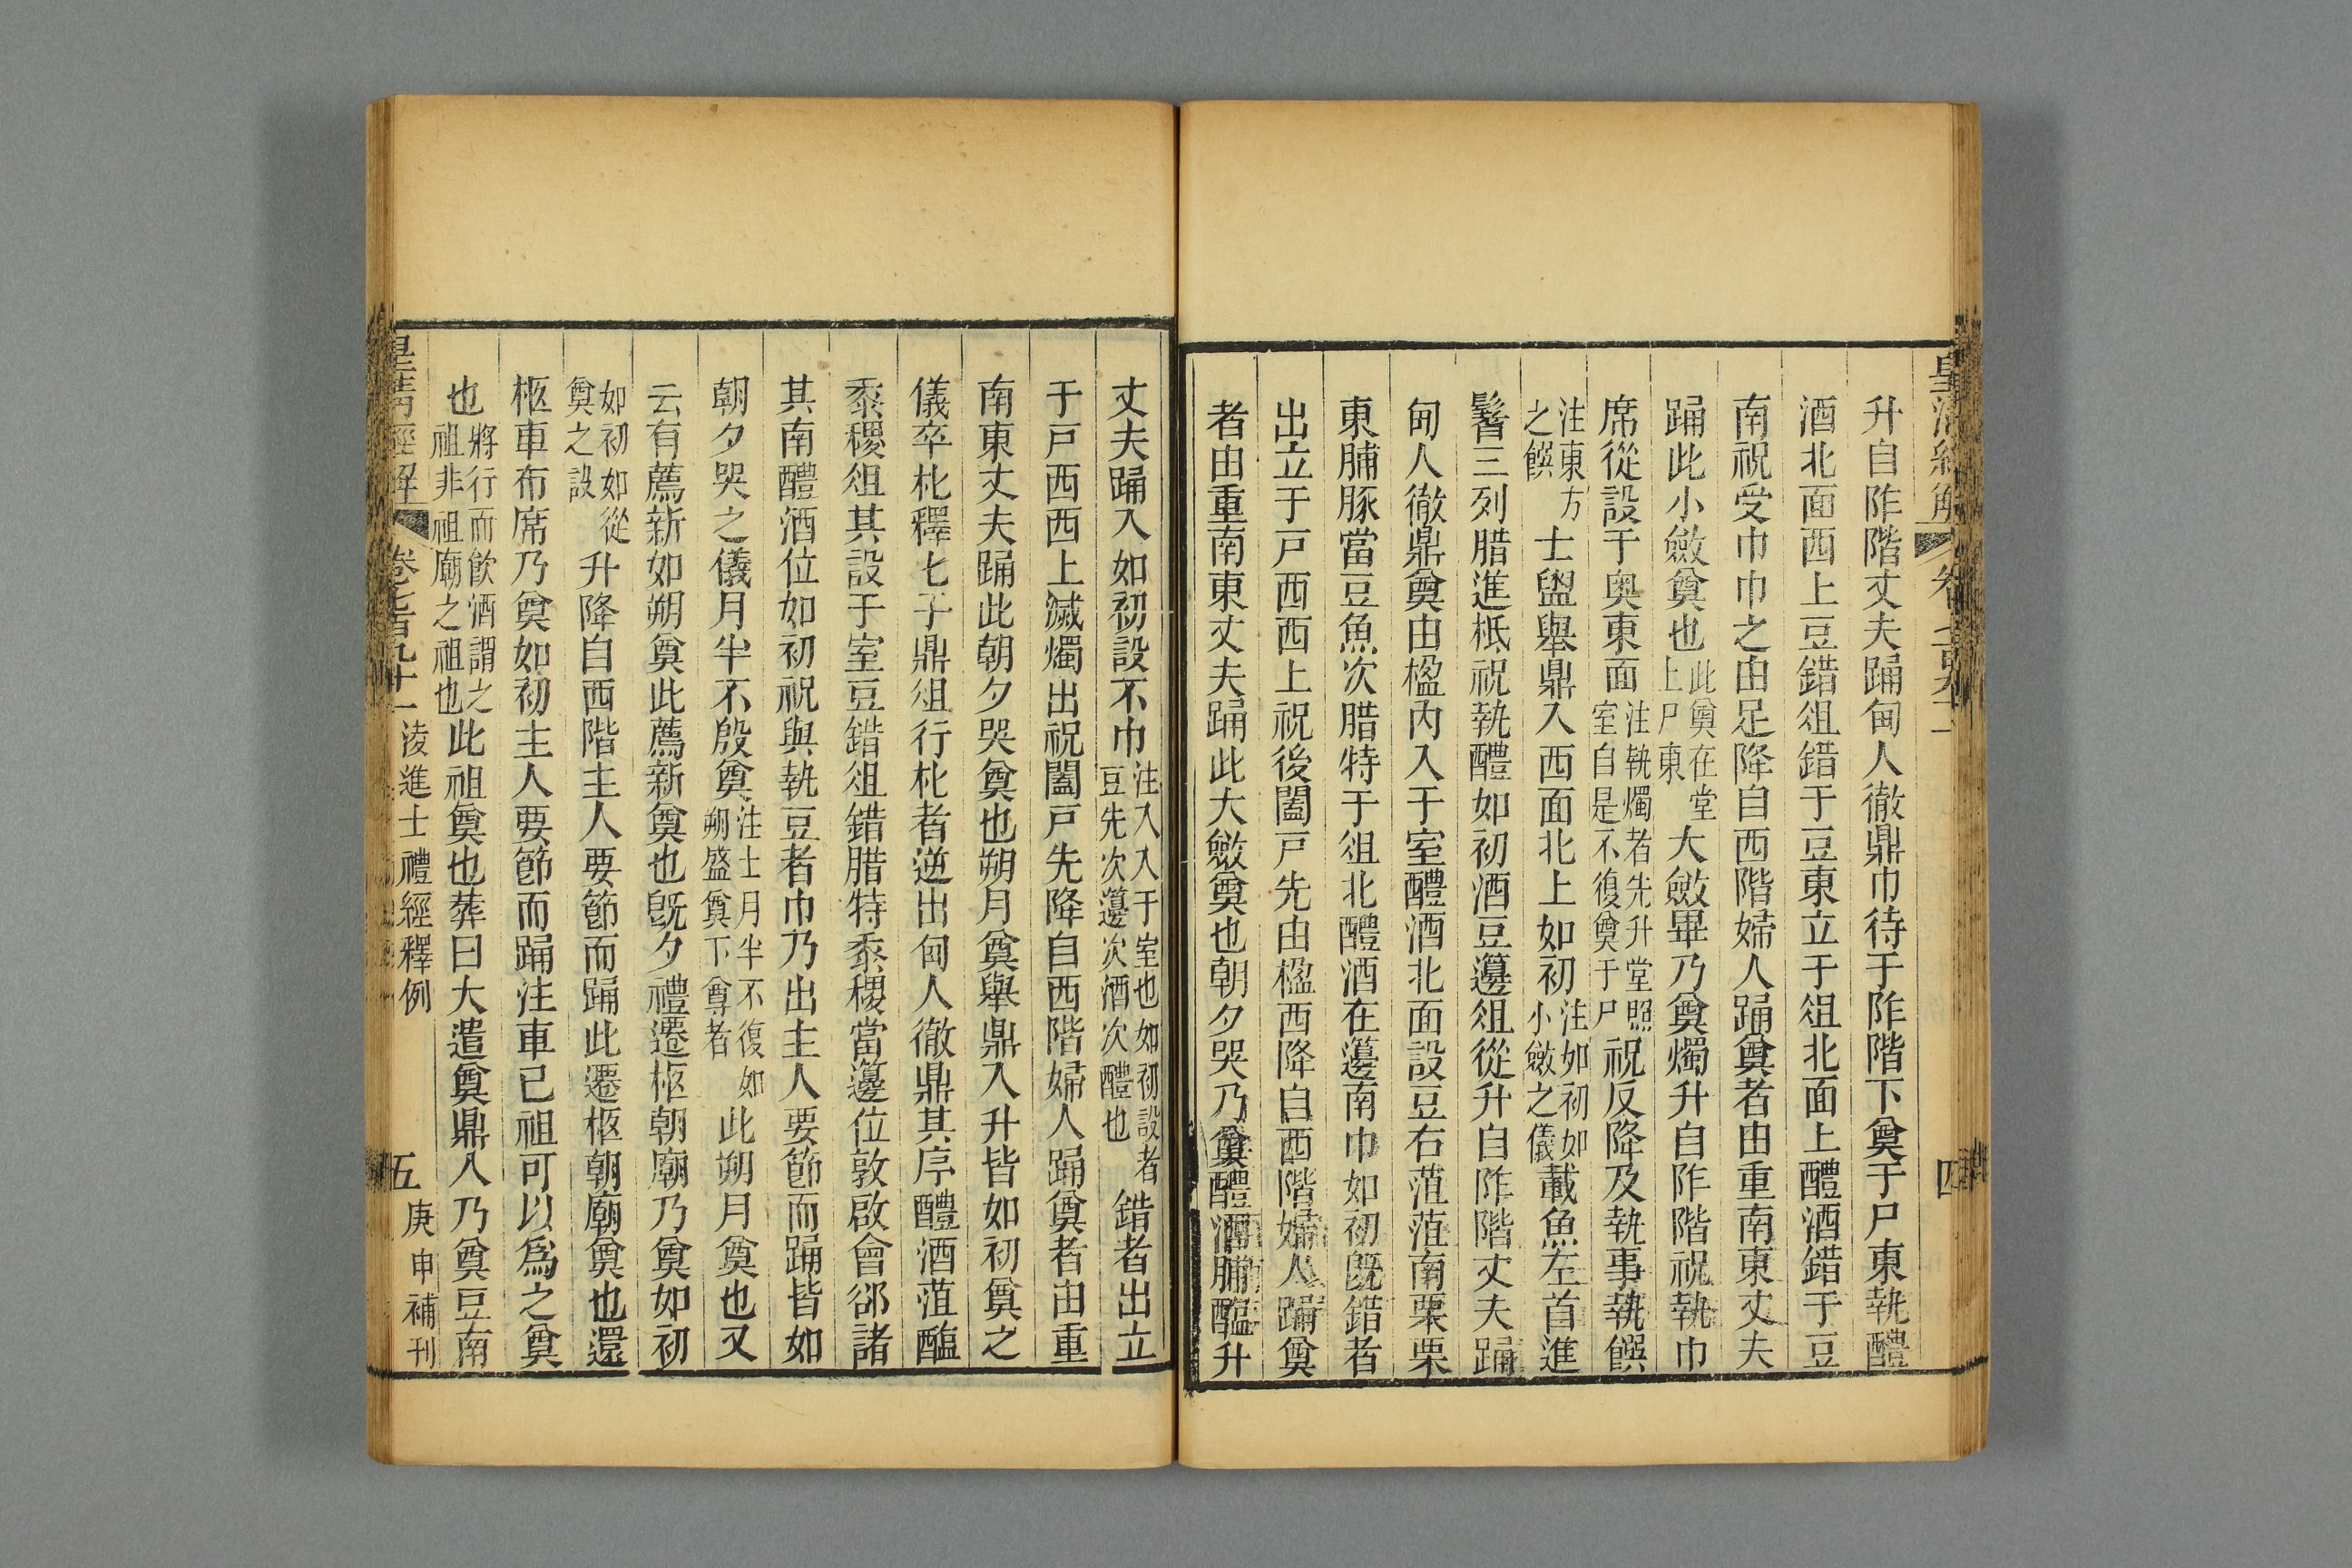 皇清經解 卷七百九十一 四
升自阼階丈夫踊甸人徹鼎巾待于阼階下奠于尸東執醴
酒北面西上豆錯俎錯于豆東立于俎北面上醴酒錯于豆
南祝受巾巾之由足降自西階婦人踊奠者由重南東丈夫
踊此小斂奠也此奠在堂上尸東大斂畢乃奠燭升自阼階祝執巾
席從設于奥東面注執燭者先升堂照室自是不復奠于尸祝反降及執事執饌
注東方之饌士盥舉鼎入西面北上如初注如初如小斂之儀載魚左首進
鬐三列腊進柢祝執醴如初酒豆籩俎從升自阼階丈夫踊
甸人徹鼎奠由楹內入于室醴酒北面設豆右菹菹南栗栗
東脯豚當豆魚次腊特于俎北醴酒在籩南巾如初旣錯者
出立于戸西西上祝後闔戸先由楹西降自西階婦人踊奠
者由重南東丈夫踊此大斂奠也朝夕哭乃奠醴酒脯醢升
丈夫踊入如初設不巾注入入于室也如初設者豆先次籩次酒次醴也錯者出立
于戸西西上滅燭出祝闔戸先降自西階婦人踊奠者由重
南東丈夫踊此朝夕哭奠也朔月奠舉鼎入升皆如初奠之
儀卒朼釋匕于鼎俎行朼者逆出甸人徹鼎其序醴酒菹醢
黍稷俎其設于室豆錯俎錯腊特黍稷當籩位敦啟會郤諸
其南醴酒位如初祝與執豆者巾乃出主人要節而踊皆如
朝夕哭之儀月半不殷奠注士月半不復如朔盛奠下尊者此朔月奠也又
云有薦新如朔奠此薦新奠也旣夕禮遷柩朝廟乃奠如初
如初如從奠之設升降自西階主人要節而踊此遷柩朝廟奠也還
柩車布席乃奠如初主人要節而踊注車已祖可以爲之奠
也將行而飮酒謂之祖非祖廟之祖也此祖奠也葬曰大遣奠鼎入乃奠豆南
皇清經解 卷七百九十一 淩進士禮經釋例 五 庚申補刊